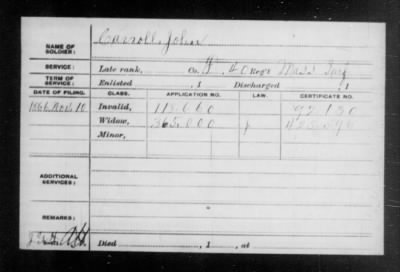 NAME OF SOLDIER: Carroll, John
SERVICE: Late rank, Co. H, 40 Reg't Mass Inf
TERM OF SERVICE: Enlisted , 1 Discharged , 1
DATE OF FILING. CLASS. APPLICATION NO. LAW. CERTIFICATE NO.
1866 Nov. 10 Invalid, 113.660 92.130
Widow, 365.000
Minor,
ADDITIONAL SERVICES:
REMARKS:
Died , 1 , at